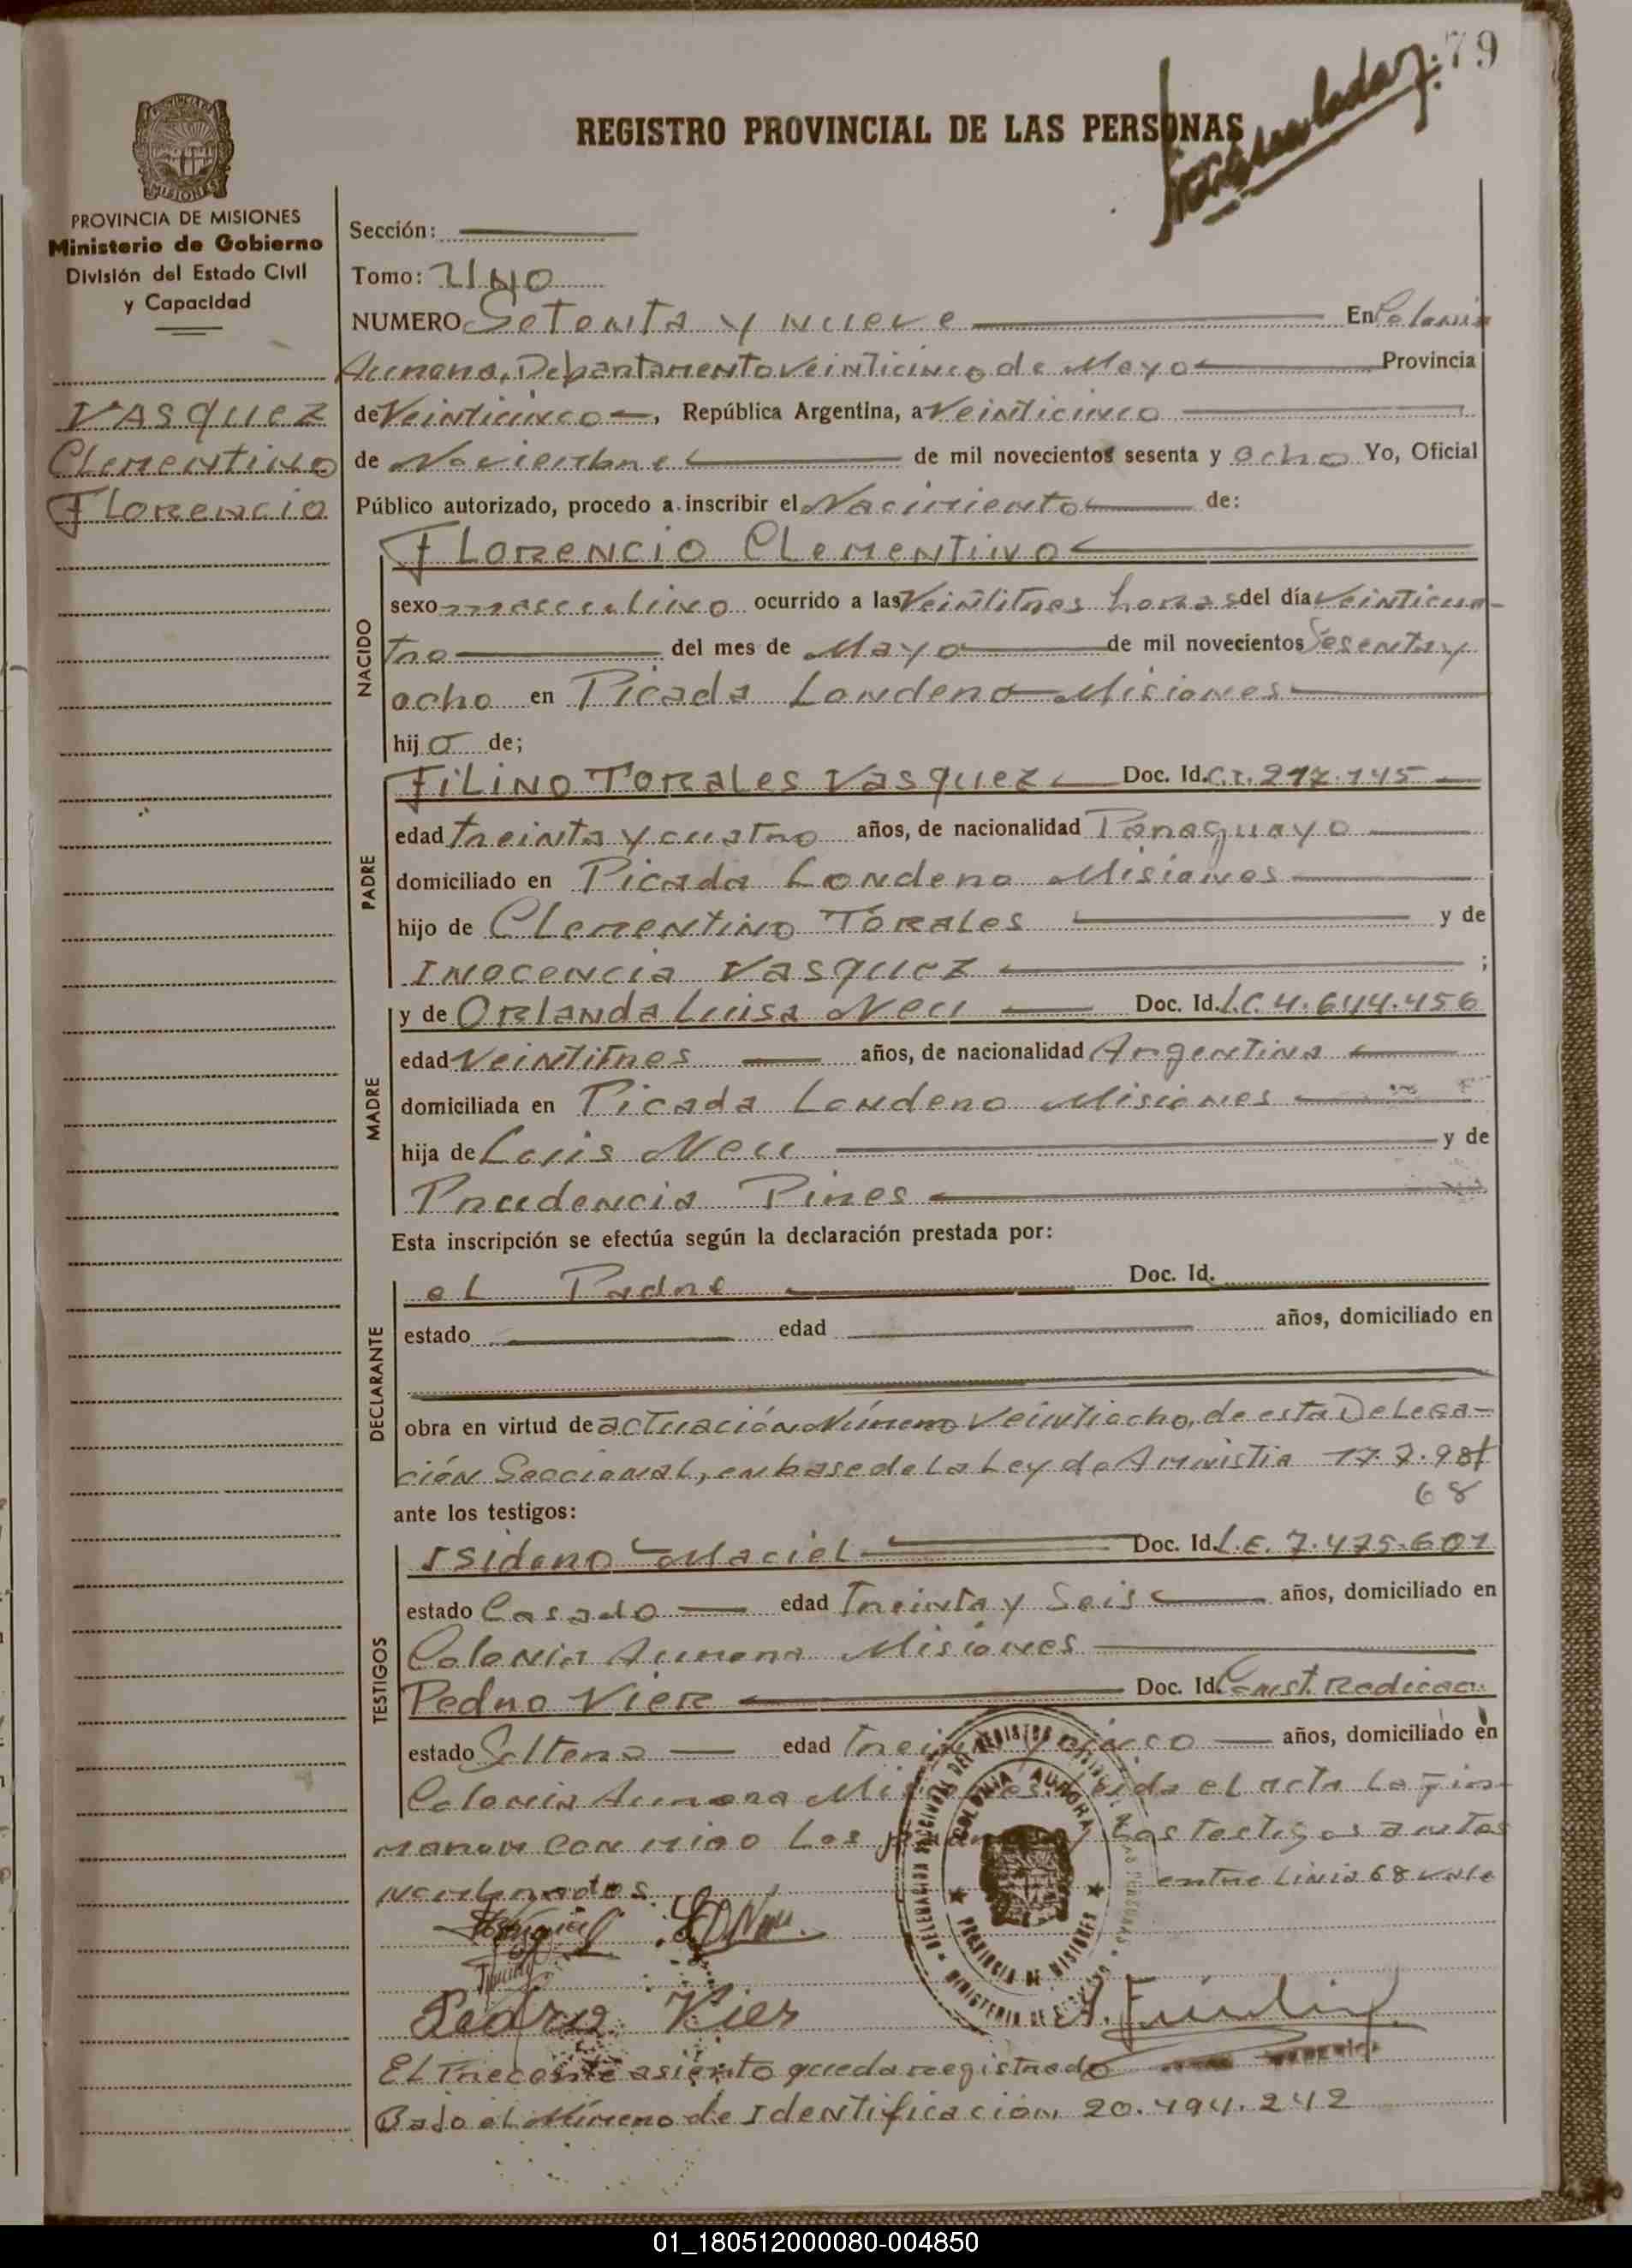 79
REGISTRO PROVINCIAL DE LAS PERSONAS
PROVINCIA DE MISIONES
Ministerio de Gobierno
División del Estado Civil
y Capacidad
VASQUEZ
Clementino
Florencio
Sección:
Tomo: UNO
NUMERO Setenta y nueve En Colonia
Aurora, Departamento Veinticinco de Mayo Provincia
de Veinticinco, República Argentina, a Veinticinco
de Noviembre de mil novecientos sesenta y ocho Yo, Oficial
Público autorizado, procedo a inscribir el Nacimiento de:
NACIDO
Florencio Clementino
sexo masculino ocurrido a las Veintitres horas del día Veinticua-
tro del mes de Mayo de mil novecientos Sesenta y
ocho en Picada Londero Misiones
hijo de;
PADRE
FiLiNO TORALES Vasquez Doc. Id. C.I. 217.145
edad treinta y cuatro años, de nacionalidad Paraguayo
domiciliado en Picada Londero Misiones
hijo de Clementino TORALES y de
Inocencia Vasquez ;
MADRE
y de ORLANDA Luisa Neu Doc. Id. L.C. 4.644.456
edad Veintitres años, de nacionalidad Argentina
domiciliada en Picada Londero Misiones
hija de Luis Neu y de
Prudencia Pires
Esta inscripción se efectúa según la declaración prestada por:
DECLARANTE
el Padre Doc. Id.
estado edad años, domiciliado en
obra en virtud de actuación Número Veintiocho, de esta Delega-
ción Seccional, en base de la Ley de Amnistia 17.7.98
68
ante los testigos:
TESTIGOS
Isidoro Maciel Doc. Id. L.E. 7.475.601
estado Casado edad Treinta y Seis años, domiciliado en
Colonia Aurora Misiones
Pedro Vier Doc. Id. Const. Radicac.
estado Soltero edad Treinta y cinco años, domiciliado en
Colonia Aurora Misiones leida el acta la fir-
maron con migo Los y Los testigos antes
nombrados. entre linia 68 vale
COLONIA AURORA
PROVINCIA DE MISIONES
Pedro Vier
El Precente asiento queda registrado
Bajo el Número de Identificación, 20.494.242
01_180512000080-004850